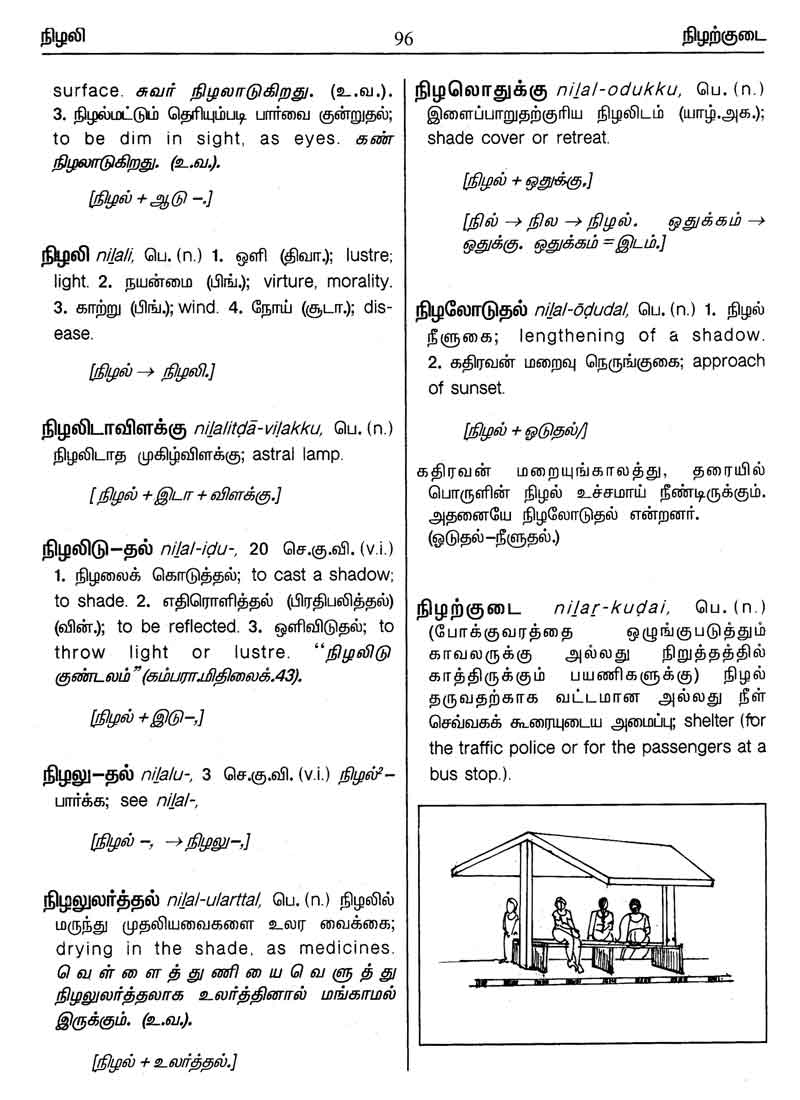 நிழலி
96
நிழற்குடை
surface. சுவர் நிழலாடுகிறது. (உ.வ.).
3. நிழல்மட்டும் தெரியும்படி பார்வை குன்றுதல்;
to be dim in sight, as eyes. கண்
நிழலாடுகிறது. (உ.வ.).
[நிழல் + ஆடு –.]
நிழலி niḻali, பெ. (n.) 1. ஒளி (திவா.); lustre;
light. 2. நயன்மை (பிங்.); virture, morality.
3. காற்று (பிங்.); wind. 4. நோய் (சூடா.); dis-
ease.
[நிழல் → நிழலி.]
நிழலிடாவிளக்கு niḻaliṭḍā-viḷakku, பெ. (n.)
நிழலிடாத முகிழ்விளக்கு; astral lamp.
[நிழல் + இடா + விளக்கு.]
நிழலிடு–தல் niḻal-iḍu-, 20 செ.கு.வி. (v.i.)
1. நிழலைக் கொடுத்தல்; to cast a shadow;
to shade. 2. எதிரொளித்தல் (பிரதிபலித்தல்)
(வின்.); to be reflected. 3. ஒளிவிடுதல்; to
throw light or lustre. “நிழலிடு
குண்டலம்” (கம்பரா.மிதிலைக்.43).
[நிழல் + இடு–,]
நிழலு–தல் niḻalu-, 3 செ.கு.வி. (v.i.) நிழல்²–
பார்க்க; see niḻal-,
[நிழல் –, → நிழலு–,]
நிழலுலர்த்தல் niḻal-ularttal, பெ. (n.) நிழலில்
மருந்து முதலியவைகளை உலர வைக்கை;
drying in the shade, as medicines.
வெள்ளைத்துணியைவெளுத்து
நிழலுலர்த்தலாக உலர்த்தினால் மங்காமல்
இருக்கும். (உ.வ.).
[நிழல் + உலர்த்தல்.]
நிழலொதுக்கு niḻal-odukku, பெ. (n.)
இளைப்பாறுதற்குரிய நிழலிடம் (யாழ்.அக.);
shade cover or retreat.
[நிழல் + ஒதுக்கு.]
[நில் → நில → நிழல். ஒதுக்கம் →
ஒதுக்கு. ஒதுக்கம் = இடம்.]
நிழலோடுதல் niḻal-ōḍudal, பெ. (n.) 1. நிழல்
நீளுகை; lengthening of a shadow.
2. கதிரவன் மறைவு நெருங்குகை; approach
of sunset.
[நிழல் + ஓடுதல்/]
கதிரவன் மறையுங்காலத்து, தரையில்
பொருளின் நிழல் உச்சமாய் நீண்டிருக்கும்.
அதனையே நிழலோடுதல் என்றனர்.
(ஓடுதல்–நீளுதல்.)
நிழற்குடை niḻaṟ-kuḍai, பெ. (n.)
(போக்குவரத்தை ஒழுங்குபடுத்தும்
காவலருக்கு அல்லது நிறுத்தத்தில்
காத்திருக்கும் பயணிகளுக்கு) நிழல்
தருவதற்காக வட்டமான அல்லது நீள்
செவ்வகக் கூரையுடைய அமைப்பு; shelter (for
the traffic police or for the passengers at a
bus stop.).